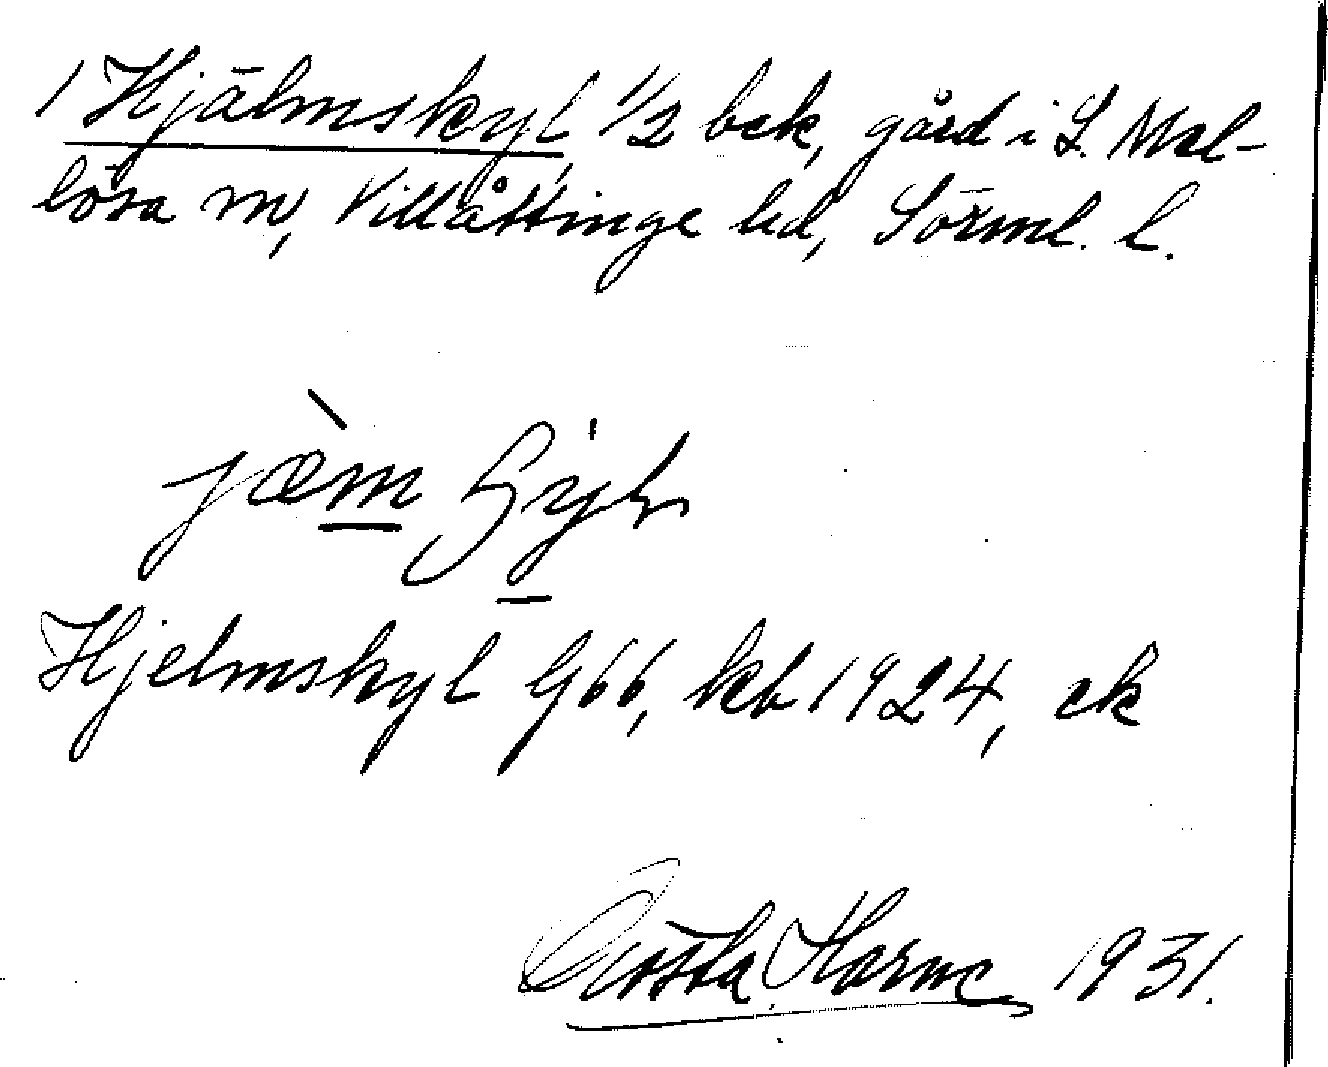 1 Hjälmskyl, 1/2 bck, gård i L. Mal-
lösa sn, Villåttinge hd, Sörml. l.
Hjelmskyl G66, kb 1924, ck
Gösta Horne 1931.